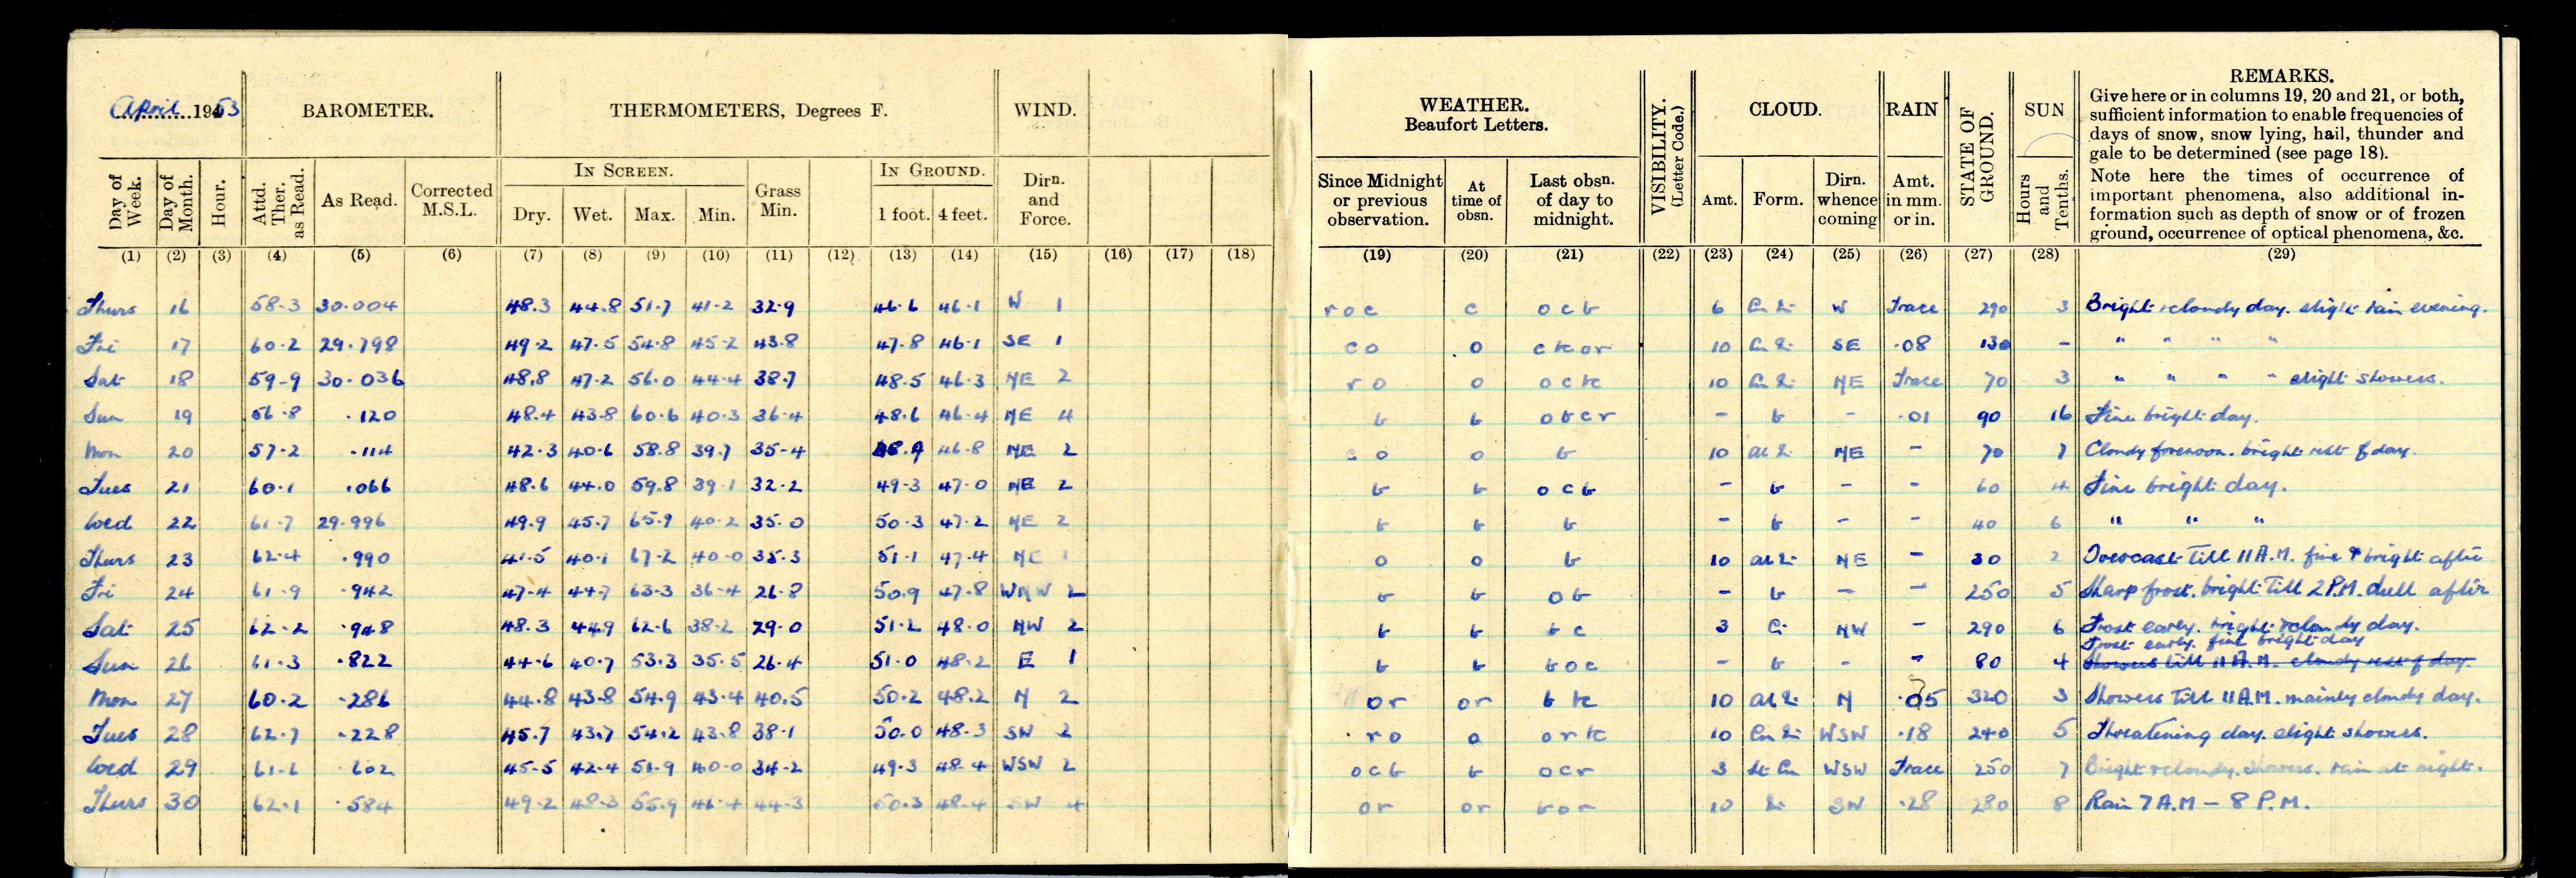 April 1953 BAROMETER. THERMOMETERS, Degrees F. WIND.
Day of Week. Day of Month. Hour. Attd. Ther. as Read. As Read. Corrected M.S.L. IN SCREEN. Dry. Wet. Max. Min. Grass Min. IN GROUND. 1 foot. 4 feet. Dirn. and Force.
(1) (2) (3) (4) (5) (6) (7) (8) (9) (10) (11) (12) (13) (14) (15) (16) (17) (18)
Thurs 16 58.3 30.004 48.3 44.8 51.7 41.2 32.9 46.6 46.1 W 1
Fri 17 60.2 29.798 49.2 47.5 54.8 45.2 43.8 47.8 46.1 SE 1
Sat 18 59.9 30.036 48.8 47.2 56.0 44.4 38.7 48.5 46.3 NE 2
Sun 19 56.8 .120 48.4 43.8 60.6 40.3 36.4 48.6 46.4 NE 4
Mon 20 57.2 .114 42.3 40.6 58.8 39.7 35.4 46.8 NE 2
Tues 21 60.1 .066 48.6 44.0 59.8 39.1 32.2 49.3 47.0 NE 2
Wed 22 61.7 29.996 49.9 45.7 65.9 40.2 35.0 50.3 47.2 NE 2
Thurs 23 62.4 .990 41.5 40.1 67.2 40.0 35.3 51.1 47.4 NE 1
Fri 24 61.9 .942 47.4 44.7 63.3 36.4 26.8 50.9 47.8 WNW 2
Sat 25 62.2 .948 48.3 44.9 62.6 38.2 29.0 51.2 48.0 NW 2
Sun 26 61.3 .822 44.6 40.7 53.3 35.5 26.4 51.0 48.2 E 1
Mon 27 60.2 .286 44.8 43.8 54.9 43.4 40.5 50.2 48.2 N 2
Tues 28 62.7 .228 45.7 43.7 54.2 43.8 38.1 50.0 48.3 SW 2
Wed 29 61.6 .602 45.5 42.4 51.9 40.0 34.2 49.3 48.4 WSW 2
Thurs 30 62.1 .584 49.2 48.3 55.9 46.4 44.3 50.3 48.4 SW 4
WEATHER. Beaufort Letters. VISIBILITY. (Letter Code.) CLOUD. RAIN STATE OF GROUND. SUN REMARKS.
Give here or in columns 19, 20 and 21, or both,
sufficient information to enable frequencies of
days of snow, snow lying, hail, thunder and
gale to be determined (see page 18).
Note here the times of occurrence of
important phenomena, also additional in-
formation such as depth of snow or of frozen
ground, occurrence of optical phenomena, &c.
Since Midnight or previous observation. At time of obsn. Last obsn. of day to midnight. Amt. Form. Dirn. whence coming Amt. in mm. or in. Hours and Tenths.
(19) (20) (21) (22) (23) (24) (25) (26) (27) (28) (29)
r o c c o c b 6 Cu Li W Trace 290 3 Bright & cloudy day. slight rain evening.
c o o c bc or 10 Cu Li SE .08 130 - " " " "
r o o o c bc 10 Cu Li NE Trace 70 3 " " " " slight showers.
b b o b c r - b - .01 90 16 Fine bright day.
c o o b 10 Al Li NE - 70 7 Cloudy forenoon. bright rest of day.
b b o c b - b - - 60 4 Fine bright day.
b b b - b - - 40 6 " " "
o o b 10 Al Li NE - 30 2 Overcast Till 11 A.M. fine & bright after
b b o b - b - - 250 5 Sharp frost. bright Till 2 P.M. dull after
b b b c 3 Ci NW - 290 6 Frost early. bright & cloudy day.
Frost early. fine bright day
b b b o c - b - - 80 4 Showers till 11 A.M. cloudy rest of day.
or or b bc 10 Al Li N 320 3 Showers Till 11 A.M. mainly cloudy day.
r o o o r bc 10 Cu Li WSW .18 240 5 Threatening day. slight showers.
o c b b o c r 3 St Cu WSW Trace 250 7 Bright & cloudy. showers. rain at night.
or or b o r 10 Li SW .28 280 8 Rain 7 A.M - 8 P.M.